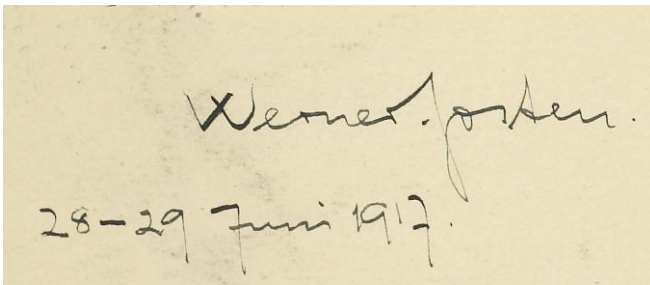 Werner Josten.
28-29 Juni 1917.